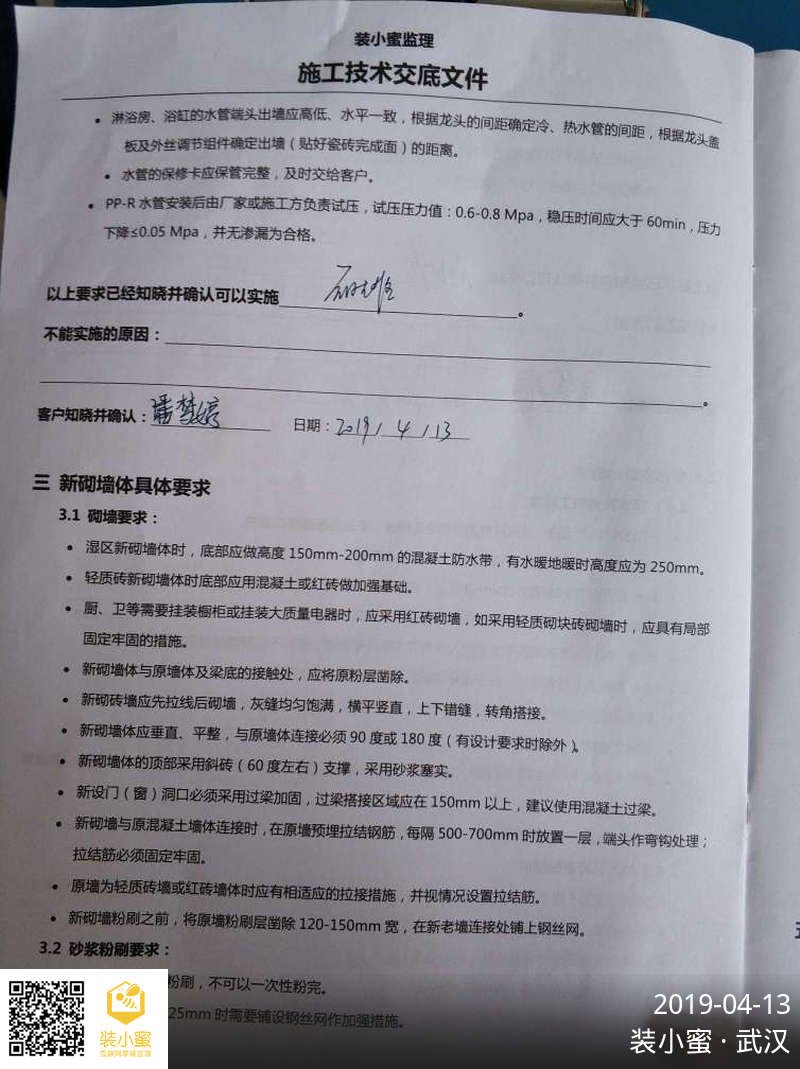 装小蜜监理
施工技术交底文件
• 淋浴房、浴缸的水管端头出墙应高低、水平一致，根据龙头的间距确定冷、热水管的间距，根据龙头盖
板及外丝调节组件确定出墙（贴好瓷砖完成面）的距离。
• 水管的保修卡应保管完整，及时交给客户。
• PP-R 水管安装后由厂家或施工方负责试压，试压压力值：0.6-0.8 Mpa，稳压时间应大于 60min，压力
下降≤0.05 Mpa，并无渗漏为合格。
以上要求已经知晓并确认可以实施
。
不能实施的原因：
。
客户知晓并确认：潘梦婷 日期：2019 / 4 / 13
三 新砌墙体具体要求
3.1 砌墙要求：
• 湿区新砌墙体时，底部应做高度 150mm-200mm 的混凝土防水带，有水暖地暖时高度应为 250mm。
• 轻质砖新砌墙体时底部应用混凝土或红砖做加强基础。
• 厨、卫等需要挂装橱柜或挂装大质量电器时，应采用红砖砌墙，如采用轻质砌块砖砌墙时，应具有局部
固定牢固的措施。
• 新砌墙体与原墙体及梁底的接触处，应将原粉层凿除。
• 新砌砖墙应先拉线后砌墙，灰缝均匀饱满，横平竖直，上下错缝，转角搭接。
• 新砌墙体应垂直、平整，与原墙体连接必须 90 度或 180 度（有设计要求时除外）。
• 新砌墙体的顶部采用斜砖（60 度左右）支撑，采用砂浆塞实。
• 新设门（窗）洞口必须采用过梁加固，过梁搭接区域应在 150mm 以上，建议使用混凝土过梁。
• 新砌墙与原混凝土墙体连接时，在原墙预埋拉结钢筋，每隔 500-700mm 时放置一层，端头作弯钩处理；
拉结筋必须固定牢固。
• 原墙为轻质砖墙或红砖墙体时应有相适应的拉接措施，并视情况设置拉结筋。
• 新砌墙粉刷之前，将原墙粉刷层凿除 120-150mm 宽，在新老墙连接处铺上钢丝网。
3.2 砂浆粉刷要求：
粉刷，不可以一次性粉完。
25mm 时需要铺设钢丝网作加强措施。
装小蜜
互联网家装监理
2019-04-13
装小蜜·武汉